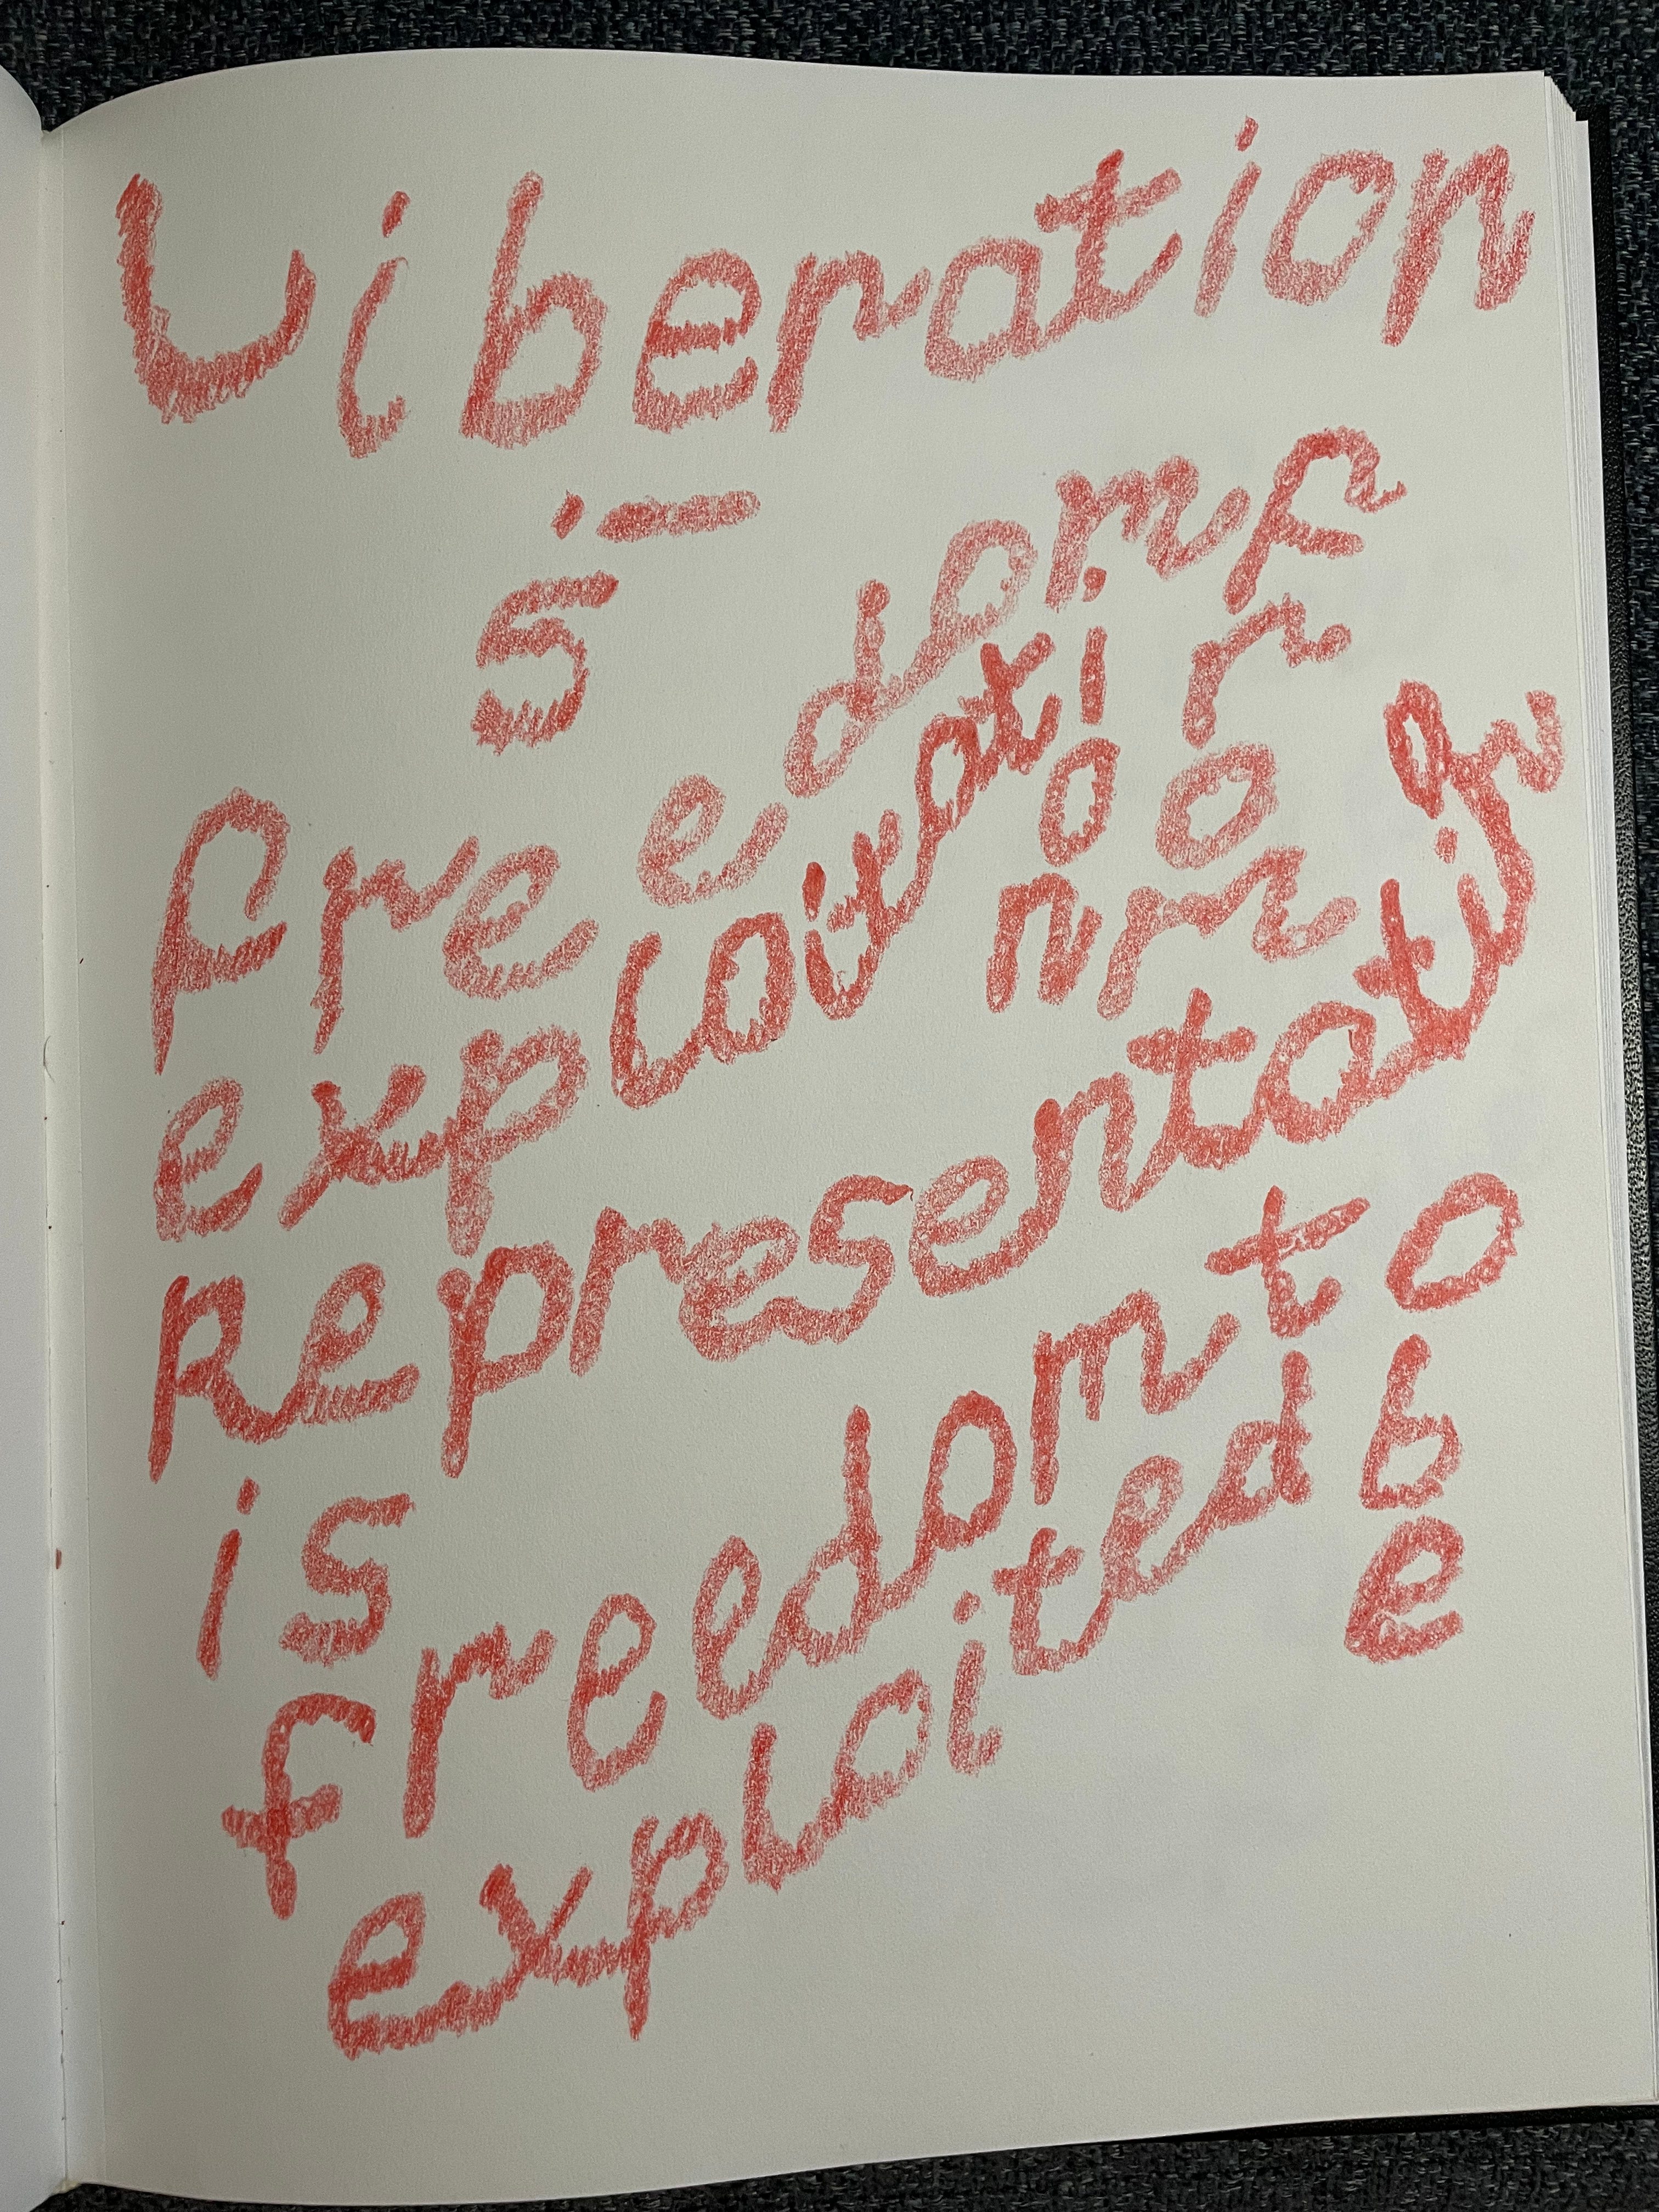 Liberation
is
freedom from
exploitation
Representation
is
freedom to be
exploited